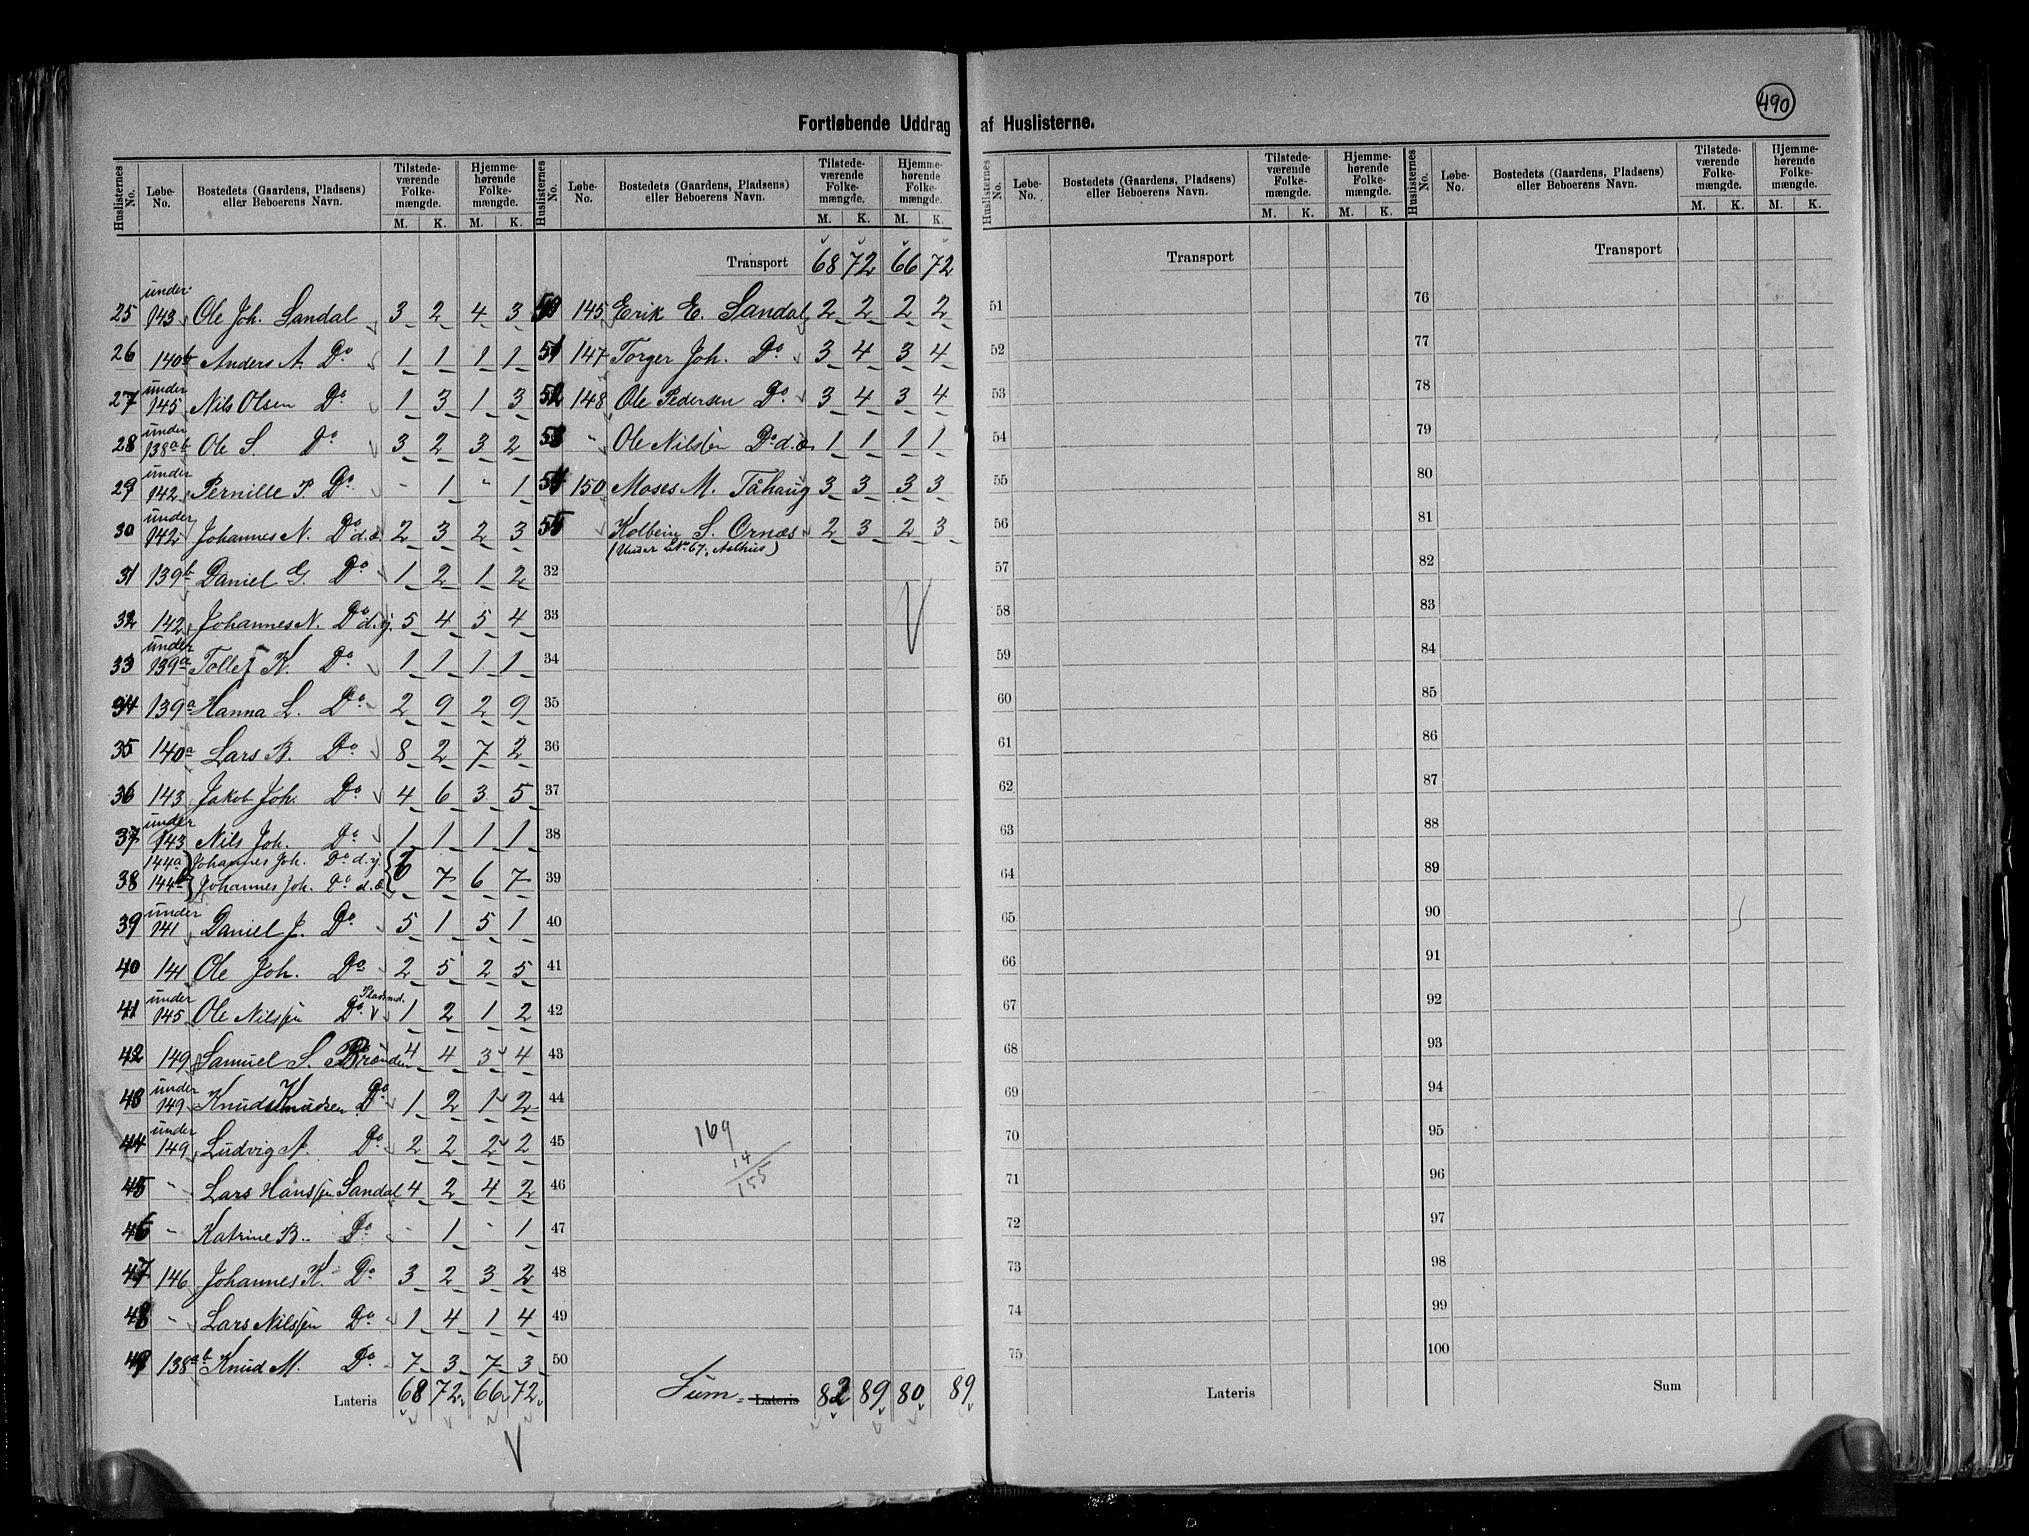 490
Fortløbende Uddrag af Huslisterne.
Huslisternes No. Løbe-No. Bostedets (Gaardens, Pladsens) eller Beboerens Navn. Tilstedeværende Folkemængde. M. K. Hjemmehørende Folkemængde. M. K.
25 under 143 Ole Joh. Sandal 3 2 4 3
26 140b Anders A. Do 1 1 1 1
27 under 145 Nils Olsen Do 1 3 1 3
28 under 138ab Ole S. Do 3 2 3 2
29 under 142 Pernille P. Do - 1 - 1
30 under 142 Johannes N. Do d.æ. 2 3 2 3
31 139b Daniel G. Do 1 2 1 2
32 142 Johannes N. Do d.y. 5 4 5 4
33 under 139a Tollef K. Do 1 1 1 1
34 139a Hanna L. Do 2 9 2 9
35 140a Lars B. Do 8 2 7 2
36 143 Jakob Joh. Do 4 6 3 5
37 under 143 Nils Joh. Do 1 1 1 1
144a Johannes Joh. Do d.y.
38 144b Johannes Joh. Do d.æ. 6 7 6 7
39 under 141 Daniel J. Do 5 1 5 1
40 141 Ole Joh. Do 2 5 2 5
41 under 145 Ole Nilssen Do Pladsmd. 1 2 1 2
42 149 Samuel S. Bränden 4 4 3 4
43 under 149 Knud Knudsen Do 1 2 1 2
44 under 149 Ludvig A. Do 2 2 2 2
45 - Lars Hanssen Sandal 4 2 4 2
46 - Katrine B. Do - 1 - 1
47 146 Johannes K. Do 3 2 3 2
48 - Lars Nilssen Do 1 4 1 4
49 138ab Knud M. Do 7 3 7 3
Lateris 68 72 66 72
Huslisternes No. Løbe-No. Bostedets (Gaardens, Pladsens) eller Beboerens Navn. Tilstedeværende Folkemængde. M. K. Hjemmehørende Folkemængde. M. K.
Transport 68 72 66 72
50 145 Erik E. Sandal 2 2 2 2
51 147 Torger Joh. Do 3 4 3 4
52 148 Ole Pedersen Do 3 4 3 4
53 - Ole Nilssen Do d.æ. 1 1 1 1
54 150 Moses M. Tåhaug 3 3 3 3
55 Kolbein S. Ornæs 2 3 2 3
(Under LNo 67, Aalhus)
32
33
34
35
36
37
38
39
40
41
42
43
44
45
169
14
155
46
47
48
49
50
Sum Lateris 82 89 80 89
Huslisternes No. Løbe-No. Bostedets (Gaardens, Pladsens) eller Beboerens Navn. Tilstedeværende Folkemængde. M. K. Hjemmehørende Folkemængde. M. K.
Transport
51
52
53
54
55
56
57
58
59
60
61
62
63
64
65
66
67
68
69
70
71
72
73
74
75
Lateris
Huslisternes No. Løbe-No. Bostedets (Gaardens, Pladsens) eller Beboerens Navn. Tilstedeværende Folkemængde. M. K. Hjemmehørende Folkemængde. M. K.
Transport
76
77
78
79
80
81
82
83
84
85
86
87
88
89
90
91
92
93
94
95
96
97
98
99
100
Sum